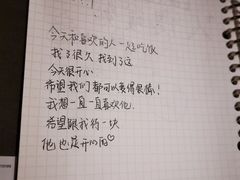 今天和喜欢的人一起吃饭
找了很久 找到了这
今天很开心
希望我们都可以变得很好！
我想一直一直喜欢他.
希望跟我约一块
他也是开心的♡